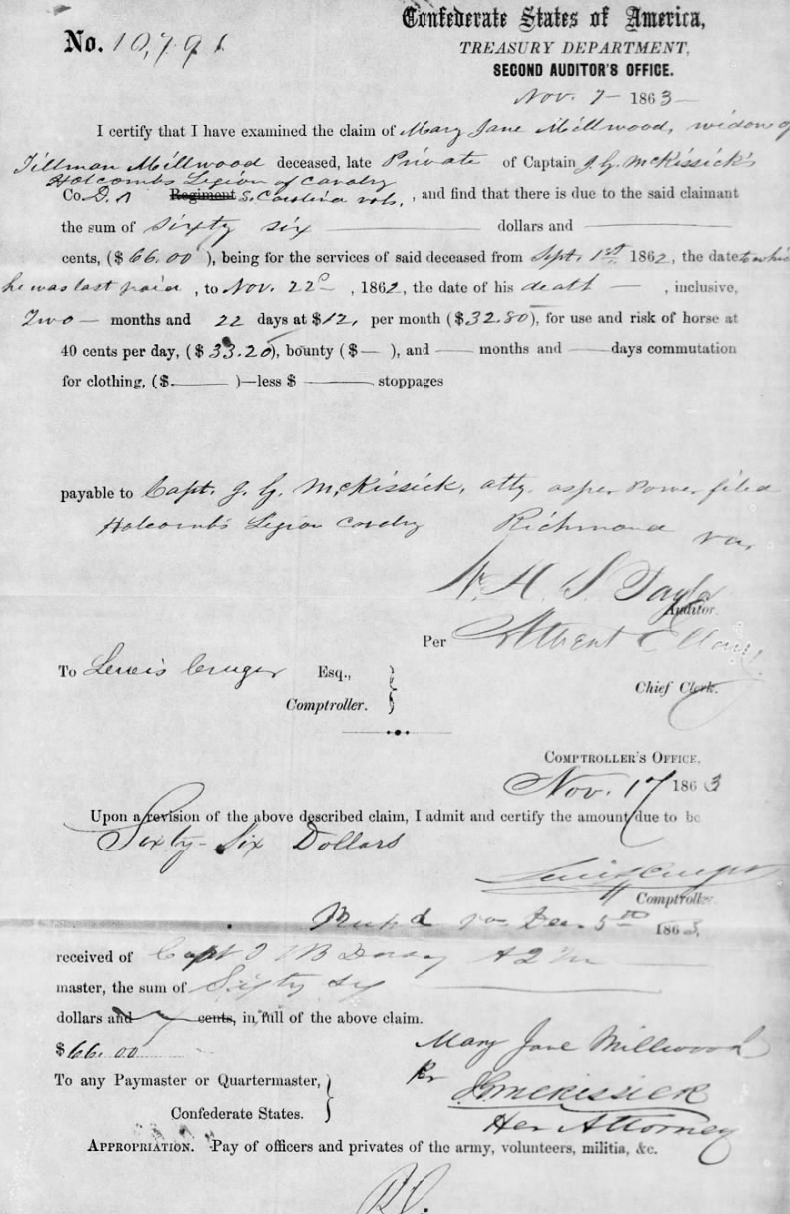 Confederate States of America,
No. 10,791
TREASURY DEPARTMENT,
SECOND AUDITOR'S OFFICE.
Nov. 7 1863
I certify that I have examined the claim of Mary Jane Millwood, widow of
Tillman Millwood deceased, late Private of Captain J. G. McKissick's
Holcombs Legion of Cavalry
Co. D. Regiment S. Carolina vols, , and find that there is due to the said claimant
the sum of Sixty six dollars and
cents, ($ 66.00 ), being for the services of said deceased from Sept. 1st 1862, the date to which
he was last paid , to Nov. 22d , 1862, the date of his death , inclusive,
Two months and 22 days at $12, per month ($32.80), for use and risk of horse at
40 cents per day, ($ 33.20), bounty ($— ), and — months and — days commutation
for clothing, ($ )—less $ stoppages
payable to Capt. J. G. McKissick, atty. as per Power filed
Holcomb's Legion Cavalry Richmond va,
W. H. S. Taylor
Auditor.
Per
To Lewis Cruger Esq.,
Chief Clerk.
Comptroller.
COMPTROLLER'S OFFICE,
Nov. 17 1863
Upon a revision of the above described claim, I admit and certify the amount due to be
Sixty-Six Dollars
Lewis Cruger
Comptroller
Dec. 5th 1863,
received of Capt
master, the sum of Sixty six
dollars and cents, in full of the above claim.
$66.00
Mary Jane Millwood
Pr
To any Paymaster or Quartermaster,
JG McKissick
Confederate States.
Her Attorney
APPROPRIATION. Pay of officers and privates of the army, volunteers, militia, &c.